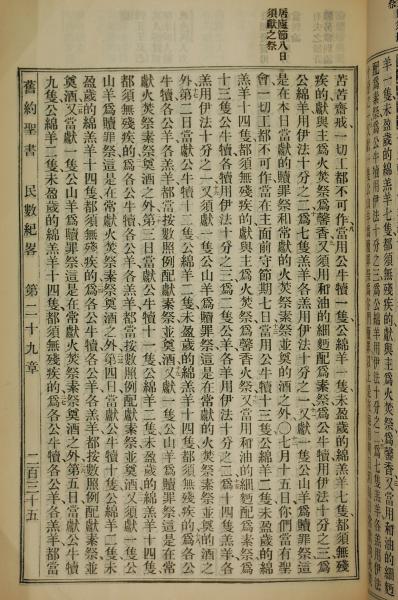 羊一隻未盈歲的綿羔羊七隻都須無殘疾的獻與主爲馨香又當用和油的細麪
配爲素祭爲公牛犢用伊法十分之三爲公綿羊用伊法十分之二爲七隻羔羊各羔用伊法
居廬節八日
須獻之祭
苦苦齋戒一切工都不可作當用公牛犢一隻公綿羊一隻未盈歲的綿羔羊七隻都須無殘
疾的獻與主爲火焚祭爲馨香又須用和油的細麪配爲素祭爲公牛犢用伊法十分之三爲
公綿羊用伊法十分之二爲七隻羔羊各羔用伊法十分之一又獻一隻公山羊爲贖罪祭這
是在本日當獻的贖罪祭和常獻的火焚祭素祭並奠的酒之外〇七月十五日你們當有聖
會一切工都不可作當在主面前守節期七日當用公牛犢十三隻公綿羊二隻未盈歲的綿
羔羊十四隻都須無殘疾的獻與主爲火焚祭爲馨香火祭又當用和油的細麪配爲素祭爲
十三隻公牛犢各犢用伊法十分之三爲二隻公羊各羊用伊法十分之二爲十四隻羔羊各
羔用伊法十分之一又須獻一隻公山羊爲贖罪祭這是在常獻的火焚祭素祭並奠的酒之
外第二日當獻公牛犢十二隻公綿羊二隻未盈歲的綿羔羊十四隻都須無殘疾的爲各公
牛犢各公羊各羔羊都當按數照例配獻素祭並奠酒又獻一隻公山羊爲贖罪祭這是在常
獻火焚祭素祭奠酒之外第三日當獻公牛犢十一隻公綿羊二隻未盈歲的綿羔羊十四隻
都須無殘疾的爲各公牛犢各公羊各羔羊都當按數照例配獻素祭並奠酒又當獻一隻公
山羊爲贖罪祭這是在常獻火焚祭素祭奠酒之外第四日當獻公牛犢十隻公綿羊二隻未
盈歲的綿羔羊十四隻都須無殘疾的爲各公牛犢各公羊各羔羊都當按數照例配獻素祭並
奠酒又當獻一隻公山羊爲贖罪祭這是在常獻火焚祭素祭奠酒之外第五日當獻公牛犢
九隻公綿羊二隻未盈歲的綿羔羊十四隻都須無殘疾的爲各公牛犢各公羊各羔羊都當
舊約聖書 民數紀畧 第二十九章 二百三十五